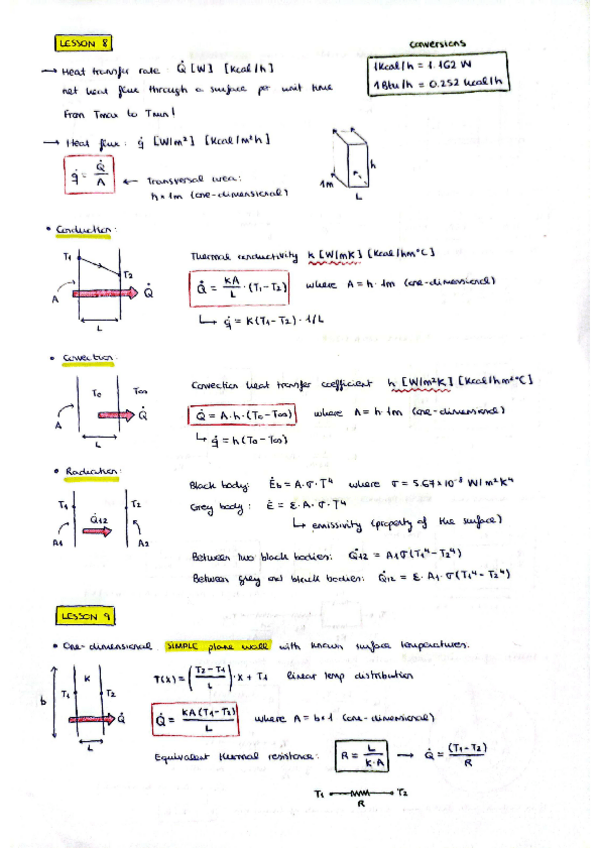 LESSON 8
conversions
1Kcal/h = 1.162 W
1Btu/h = 0.252 kcal/h
→ Heat transfer rate: Q̇ [W] [Kcal/h]
net heat flux through a surface per unit time
From Tmax to Tmin!
→ Heat flux: q̇ [W/m²] [Kcal/m²h]
q̇ = Q̇/A ← Transversal area:
h × 1m (one-dimensional)
1m
h
L
• Conduction:
T1
T2
A
Q̇
L
Thermal conductivity K [W/mK] [Kcal/hm°C]
Q̇ = KA/L · (T1-T2) where A = h · 1m (one-dimensional)
↳ q̇ = K(T1-T2) · 1/L
• Convection:
T0
T∞
A
Q̇
L
Convection heat transfer coefficient h [W/m²K] [Kcal/hm²°C]
Q̇ = A·h·(T0-T∞) where A = h·1m (one-dimensional)
↳ q̇ = h(T0-T∞)
• Radiation:
T1
T2
Q̇12
A1
A2
Black body: Ėb = A·σ·T⁴ where σ = 5.67×10⁻⁸ W/m²K⁴
Grey body: Ė = ε·A·σ·T⁴
↳ emissivity (property of the surface)
Between two black bodies: Q̇12 = A1σ(T1⁴-T2⁴)
Between grey and black bodies: Q̇12 = ε·A1·σ(T1⁴-T2⁴)
LESSON 9
• One-dimensional SIMPLE plane wall with known surface temperatures.
b
K
T1
T2
Q̇
L
T(x) = ((T2-T1)/L)·x + T1 linear temp distribution
Q̇ = KA(T1-T2)/L where A = b·1 (one-dimensional)
Equivalent thermal resistance: R = L/K·A → Q̇ = (T1-T2)/R
T1
T2
R